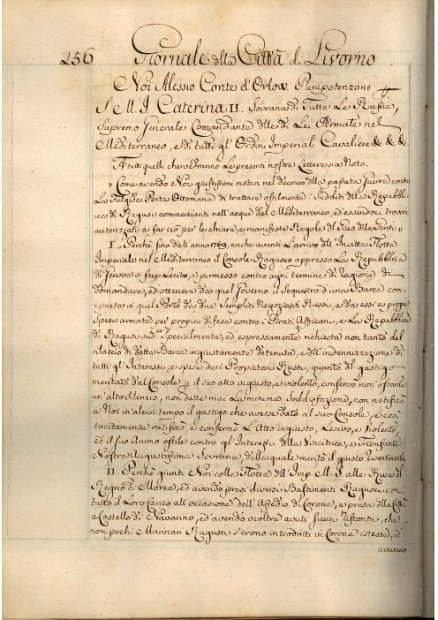 156 Giornale della Città di Livorno
Noi Alessio Conte d'Orlow Plenipotenziario
S. M. I. Caterina II. Sovrana di Tutte Le Russie,
Supremo Generale Comandante delle di Lei Armate nel
Mediterraneo, e di tutti gl'Ordini Imperiali Cavaliere &c. &c. &c.
A tutti quelli che vedranno Le presenti nostre Lettere sia Noto.
Come avendo Noi giustissimi motivi nel decorso della passata Guerra contro
La Porta Ottomana di trattare ostilmente i Sudditi della Repubbli=
ca di Ragusi commercianti nell'acque del Mediterraneo, ed essendoci trovati
autorizzati a far ciò per le chiare, e manifeste Regole di
I. Perchè fino dall'anno 1769, anche avanti L'arrivo dell'Invitta Flotta
Imperiale nel Mediterraneo il Console Raguseo appresso La Repubblica
di Genova si fece Lecito, e permesso contro ogni termine di ragione di
domandare, ed ottenere da quel Governo il Sequestro d'una Barca com=
prata in quel Porto da due Semplici Negozianti Russi, e da essi a proprie
Spese armata per propria difesa contro i Pirati Affricani, e La Repubblica
di Ragusi Specialmente, ed espressamente richiesta non tanto del
rilascio di detta Barca ingiustamente detenuta, e dell'indennizzazione di
tutti gl'Interessi, e spese dei Propietari Russi, quanto del gastigo
meritato dal Console il suo atto ingiusto, e violento, conservò non ostante
un'alto silenzio, non dette mai La minima Soddisfazione, non notificò
a Noi in alcun tempo il gastigo che avesse dato al suo Console, e così
tacitamente ratificò, e confermò L'Atto ingiusto, Lesivo, e Violento,
ed il suo Animo ostile contro gl'Interessi della Vincitrice, e Trionfante
Nostra Augustissima Sovrana, della quale meritò il giusto risentimento
II Perchè giunti Noi colla Flotta dell'Imp. M. S. alle Rive del
Regno di Morea, ed avendo presi diversi Bastimenti Ragusei con
tutto il Loro Carico all'occasione dell'Assedio di Corone, e presa della Città
e Castello di Navarino, ed avendo inoltre avuti sicuri riscontri, che
non pochi Marinari Ragusei s'erono introdotti in Corone istessa, ed
avevano